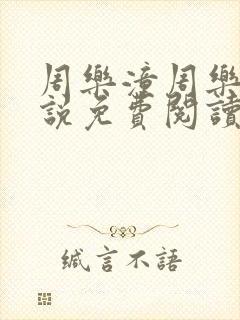 周樂潼周樂
說免費閱讀
緘言不語